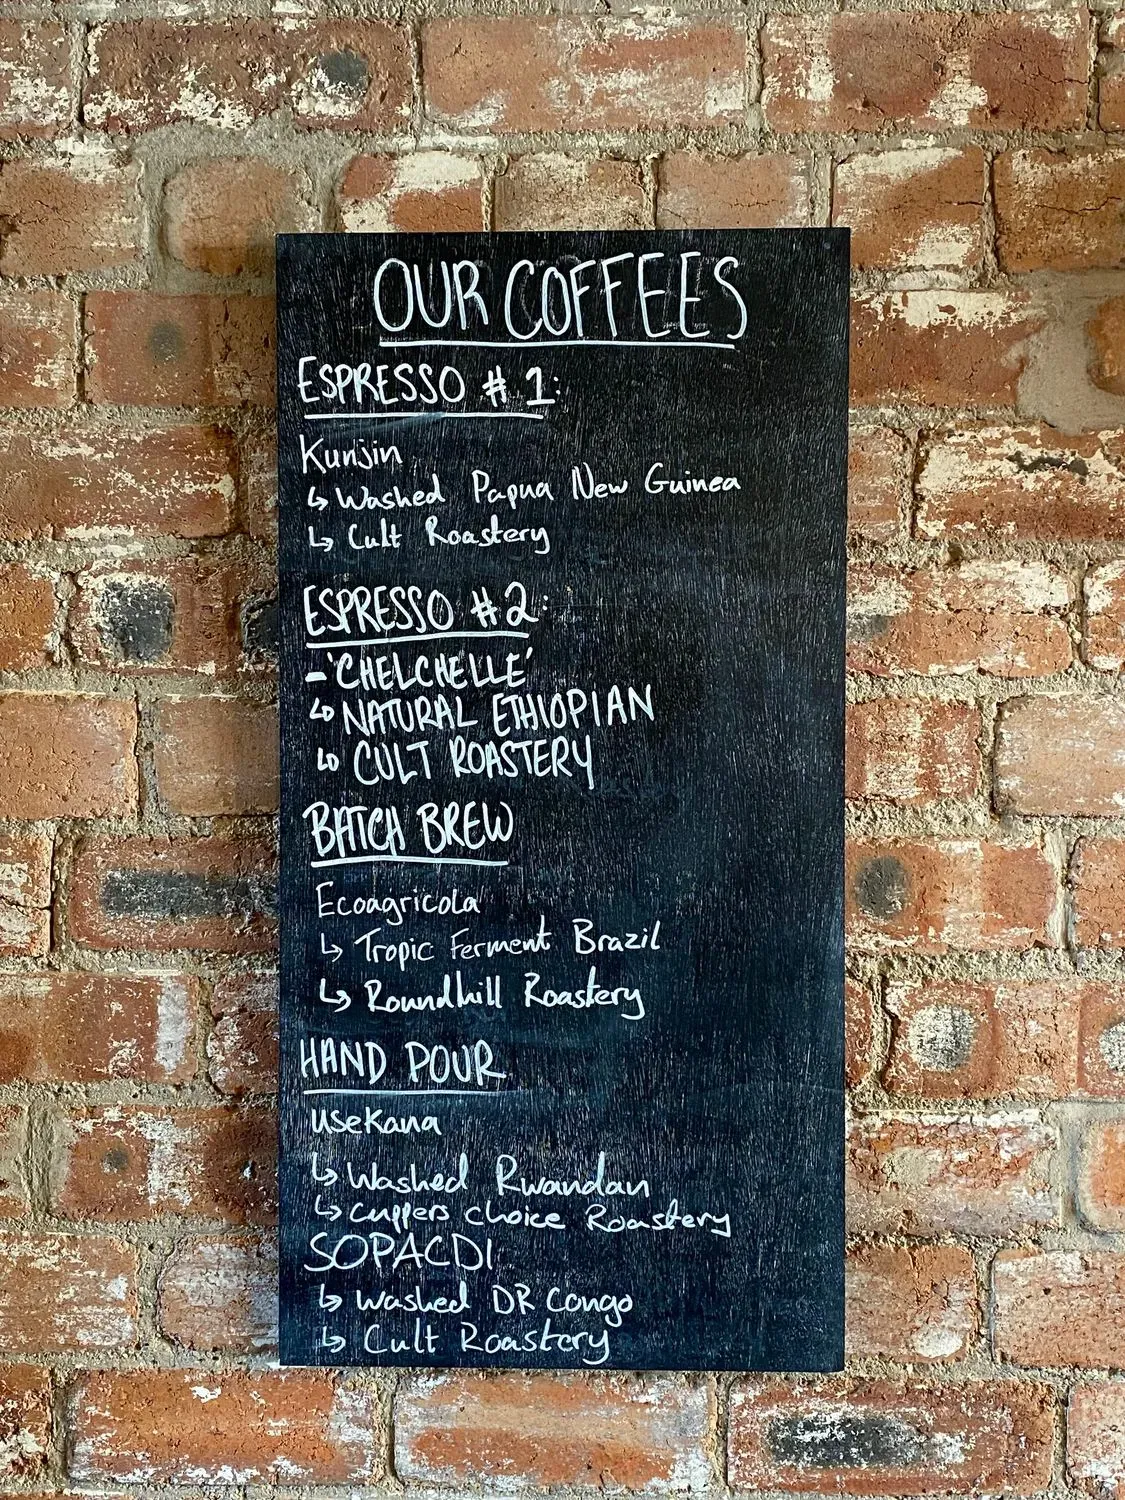 OUR COFFEES
ESPRESSO # 1:
Kunjin
↳ Washed Papua New Guinea
↳ Cult Roastery
ESPRESSO #2:
- 'CHELCHELLE'
↳ NATURAL ETHIOPIAN
↳ CULT ROASTERY
BATCH BREW
Ecoagricola
↳ Tropic Ferment Brazil
↳ Roundhill Roastery
HAND POUR
UseKana
↳ Washed Rwandan
↳ cuppers choice Roastery
SOPACDI
↳ Washed DR Congo
↳ Cult Roastery